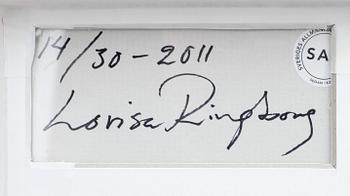 14/30-2011
Lovisa Ringborg
SVERIGES ALLMÄNN
SA